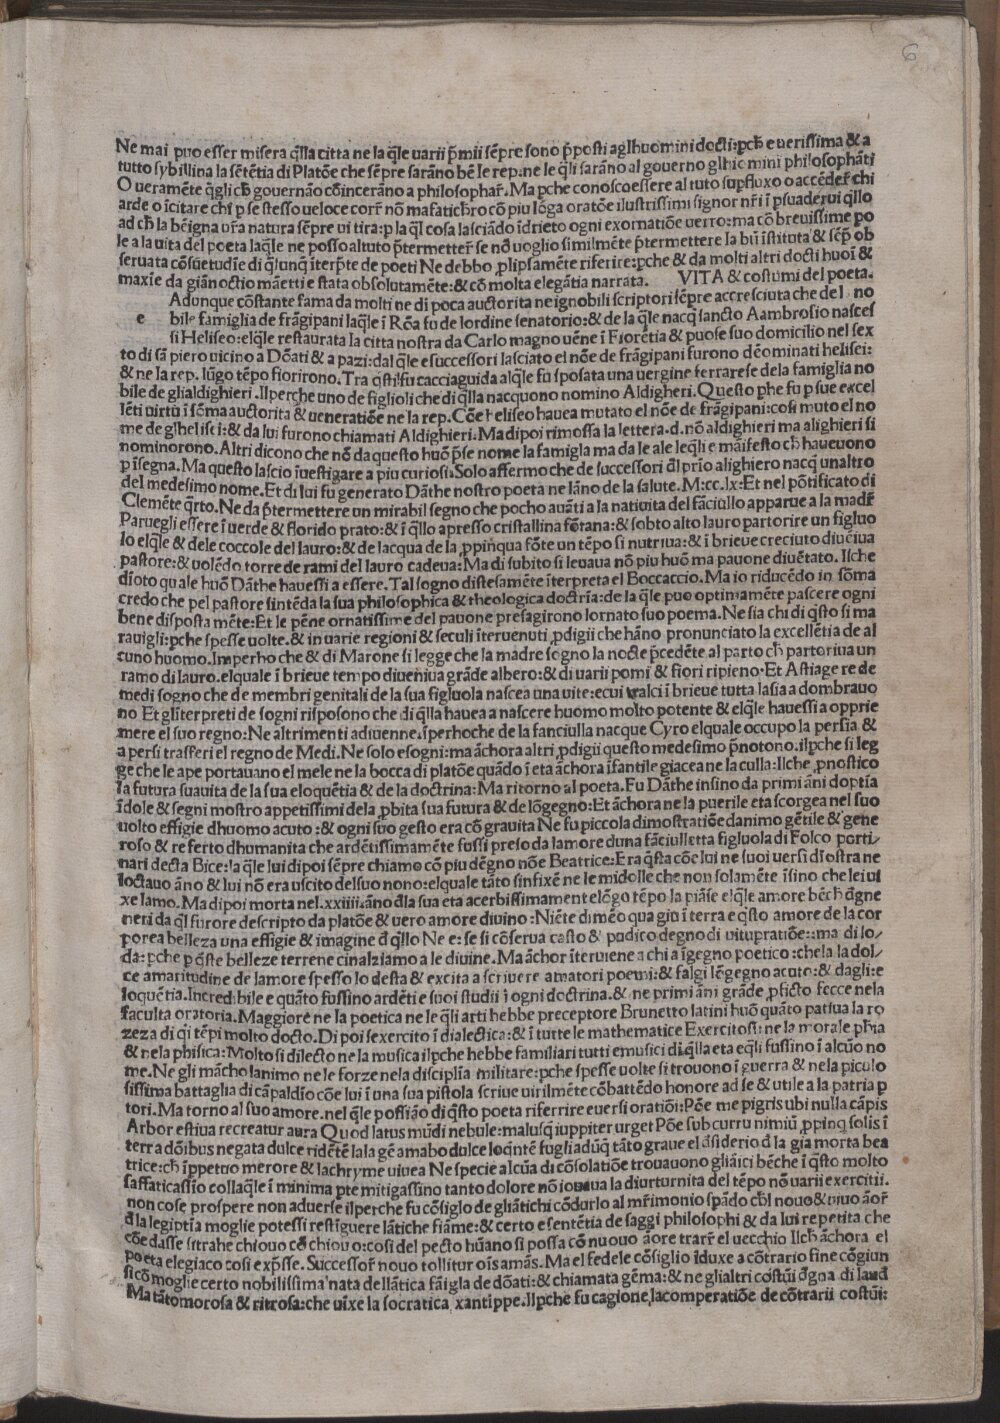 6
Ne mai puo esser misera q̃lla citta ne la q̃le uarii p̃mii sẽpre sono p̃posti aglhuomini docti: pch̃ e uerissima & a
tutto sybillina la sẽtẽtia di Platõe che sẽpre sarãno bẽ le rep: ne le q̃li sarãno al governo glhuomini philosophãti
O ueramẽte q̃gli ch̃ gouernão cõincerãno a philosophar̃. Ma pche conosco essere al tuto supfluxo o accẽder̃ chi
arde o ĩcitare chi p se stesso ueloce corr̃ nõ mafatich̃ro cõ piu lõga oratõe ilustrissimi signor nr̃i ĩ psuaderui q̃llo
ad ch̃ la bẽigna ur̃a natura sẽpre ui tira: p la q̃l cosa lasciãdo ĩdrieto ogni exornatiõe uerro: ma cõ breuissime po
le a la uita del poeta laq̃le ne posso altuto p̃termetter̃ se nõ uoglio similmẽte p̃termettere la bũ ĩstituta & sẽp̃ ob
seruata cõsuetudĩe di q̃lunq̃ ĩterp̃te de poeti Ne debbo plipsamẽte riferire: pche & da molti altri docti huoĩ &
maxĩe da giãnoctio mãetti e stata obsolutamẽte: & cõ molta elegãtia narrata. VITA & costumi del poeta.
Adunque cõstante fama da molti ne di poca auctorita ne ignobili scriptori sẽpre accresciuta che del no
e bile famiglia de frãgipani laq̃le ĩ Rõa fu de lordine senatorio: & de la q̃le nacq̃ sancto Aambrosio nasces
si Heliseo: elq̃le restaurata la citta nostra da Carlo magno uẽne ĩ Fiorẽtia & puose suo domicilio nel sex
to di sã piero uicino a Dõati & a pazi: dal q̃le e successori lasciato el nõe de frãgipani furono dẽominati helisei:
& ne la rep. lũgo tẽpo fiorirono. Tra q̃sti fu cacciaguida alq̃le fu sposata una uergine ferrarese dela famiglia no
bile de glialdighieri. Ilperche uno de figlioli che di q̃lla nacquono nomino Aldigheri. Questo phe fu p sue excel
lẽti uirtù ĩ sõma auctorita & ueneratiõe ne la rep. Cõe heliseo hauea mutato el nõe de frãgipani: cosi muto el no
me de glhelisei: & da lui furono chiamati Aldighieri. Ma dipoi rimossa la lettera .d. nõ aldighieri ma alighieri si
nominorono. Altri dicono che nõ da questo huõ p̃se nome la famigla ma da le ale leq̃li e maifesto ch̃ haueuono
p ĩsegna. Ma questo lascio ĩuestigare a piu curiosi. Solo affermo che de successori d̃l prio alighiero nacq̃ unaltro
del medesimo nome. Et di lui fu generato Dãthe nostro poeta ne lãno de la salute. M: cc. lx: Et nel põtificato di
Clemẽte q̃rto. Ne da p̃termettere un mirabil segno che pocho auãti a la natiuita del fãciullo apparue a la madr̃
Paruegli essere ĩ uerde & florido prato: & ĩ q̃llo apresso cristallina fõtana: & sobto alto lauro partorire un figluo
lo elq̃le & dele coccole del lauro: & de lacqua de la ppinqua fõte un tẽpo si nutriua: & ĩ brieue creciuto diuẽiua
pastore: & uolẽdo torre de rami del lauro cadeua: Ma di subito si leuaua nõ piu huõ ma pauone diuẽtato. Ilche
dĩoto quale huõ Dãthe hauessi a essere. Tal sogno distesamẽte ĩterpreta el Boccaccio. Ma io riducẽdo in sõma
credo che pel pastore sintẽda la sua philosophica & theologica doctrĩa: de la q̃le puo optimamẽte pascere ogni
bene disposta mẽte: Et le pẽne ornatissime del pauone presagirono lornato suo poema. Ne sia chi di q̃sto si ma
rauigli: pche spesse uolte. & in uarie regioni & seculi ĩteruenuti pdigii che hãno pronunciato la excellẽtia de al
cuno huomo. Imperho che & di Marone si legge che la madre sogno la nocte p̃cedẽte al parto ch̃ partoriua un
ramo di lauro. elquale ĩ brieue tempo diueniua grãde albero: & di uarii pomi & fiori ripieno. Et Astiage re de
medi sogno che de membri genitali de la sua figluola nascea una uite: e cui tralci ĩ brieue tutta lasia adombrauo
no Et glĩterpreti de sogni risposono che di q̃lla hauea a nascere huomo molto potente & elq̃le hauessi a opprie
mere el suo regno: Ne altrimenti aduienne. ĩperhoche de la fanciulla nacque Cyro elquale occupo la persia &
a persi trasferi el regno de Medi. Ne solo e sogni: ma ãchora altri pdigii questo medesimo p̃notono. ilpche si leg
ge che le ape portauano el mele ne la bocca di platõe quãdo ĩ eta ãchora ĩfantile giacea ne la culla: Ilche pnostico
la futura suauita de la sua eloquẽtia & de la doctrina: Ma ritorno al poeta. Fu Dãthe insino da primi ãni doptĩa
ĩdole & segni mostro appetissimi dela pbita sua futura & de lõgegno: Et ãchora ne la puerile eta scorgea nel suo
uolto effigie dhuomo acuto: & ogni suo gesto era cõ grauita Ne fu piccola dimostratiõe danimo gẽtile & gene
roso & referto dhumanita che ardẽtissimamẽte fussi preso da lamore duna fãciulletta figluola di Folco porti-
nari decta Bice: la q̃le lui dipoi sẽpre chiamo cõ piu dẽgno nõe Beatrice: Era q̃sta cõe lui ne suoi uersi dĩostra ne
loctauo ãno & lui nõ era uscito del suo nono: elquale tãto sinfixẽ ne le midolle che non solamẽte ĩsino che lei ui
xe lamo. Ma dipoi morta nel. xxiiii. ãno d̃la sua eta acerbissimament e lõgo tẽpo la piãse elq̃le amore bẽch d̃gne
neri da q̃l furore descripto da platõe & uero amore diuino: Niẽte dimẽo qua giu ĩ terra e q̃sto amore de la cor
porea belleza una effigie & imagine d̃ q̃llo Ne e: se si cõserua casto & pudico degno di uitupratiõe:: ma di lo/
da: pche p q̃ste belleze terrene cinalziamo a le diuine. Ma ãchor ĩteruiene a chi a ĩgegno poetico: che la dol/
ce amaritudine de lamore spesso lo desta & excita a scriuere amatori poemi: & falgi lẽgegno acuto: & dagli: e
loquẽtia. Incredibile e quãto fussino ardẽti e suoi studii ĩ ogni doctrina. & ne primi ãni grãde pficto fecce nela
faculta oratoria. Maggiore ne la poetica ne le q̃li arti hebbe preceptore Brunetto latini huõ quãto patiua la ro
zeza di q̃i tẽpi molto docto. Di poi sexercito ĩ dialectica: & ĩ tutte le mathematice Exercitossi ne la morale phĩa
& nela phisica: Molto si dilecto ne la musica ilpche hebbe familiari tutti e musici di q̃lla eta e q̃li fussino ĩ alcũo no
me. Ne gli mãcho lanimo ne le forze nela disciplĩa militare: pche spesse uolte si trouono ĩ guerra & nela piculo
sissima battaglia di cãpaldĩo cõe lui ĩ una sua pistola scriue uirilmẽte cõbattẽdo honore ad se & utile a la patria p
tori. Ma torno al suo amore. nel q̃le possião di q̃sto poeta riferrire e uersi oratiõi: Põe me pigris ubi nulla cãpis
Arbor estiua recreatur aura Quod latus mũdi nebule: malusq̃ iuppiter urget Põe sub curru nimiũ ppinq̃ solis ĩ
terra dõibus negata dulce ridẽtẽ lala gẽ amabo dulce loq̃ntẽ fugliadũq̃ tãto graue el d̃siderio d̃ la gia morta bea
trice: ch̃ ĩppetuo merore & lachryme uiuea Ne specie alcũa di cõsolatiõe trouauono gliãici bẽche ĩ q̃sto molto
saffaticassĩo collaq̃le ĩ minima pte mitigassino tanto dolore nõ iouaua la diurturnita del tẽpo nõ uarii exercitii.
non cose prospere non aduerse ilperche fu cõsiglo de gliãtichi cõdurlo al mr̃imonio spãdo ch̃l nouo & uiuo ãor̃
d̃ la legiptĩa moglie potessi restĩguere lãtiche fiãme: & certo e sentẽtia de saggi philosophi & da lui repetita che
cõe dasse si trahe chiouo cõ chiouo: cosi del pecto hũano si possa cõ nuouo ãore trarr̃ el uecchio Ilch̃ ãchora el
poeta elegiaco cosi exp̃sse. Successor̃ nouo tollitur oĩs amãs. Ma el fedele cõsiglio ĩduxe a cõtrario fine cõgiun
si cõ moglie certo nobilissima nata dellãtica fãigla de dõati: & chiamata gẽma: & ne glialtri costũi d̃gna di laud̃
Ma tãto morosa & ritrosa: che uixe la socratica xantippe. Ilpche fu cagione lacomperatiõe de cõtrarii costũi: